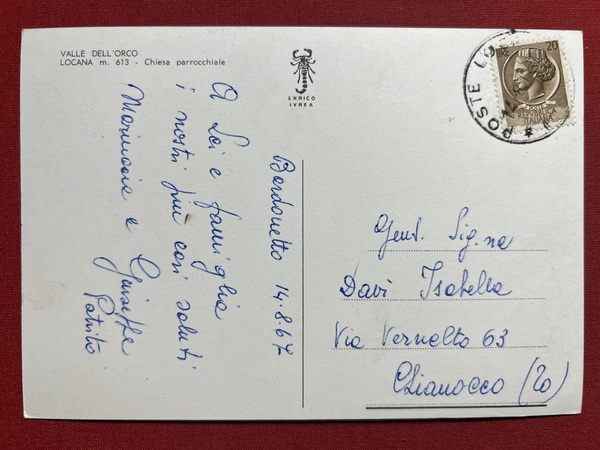 VALLE DELL'ORCO
LOCANA m. 613 - Chiesa parrocchiale
ENRICO
IVREA
20
POSTE
Bardonetto 14.8.67
A Lei e famiglia
i nostri più cari saluti
Mariuccia e Giuseppe
Patrito
Gent. Sig.na
Davì Isabella
Via Vernetto 63
Chianocco (To)